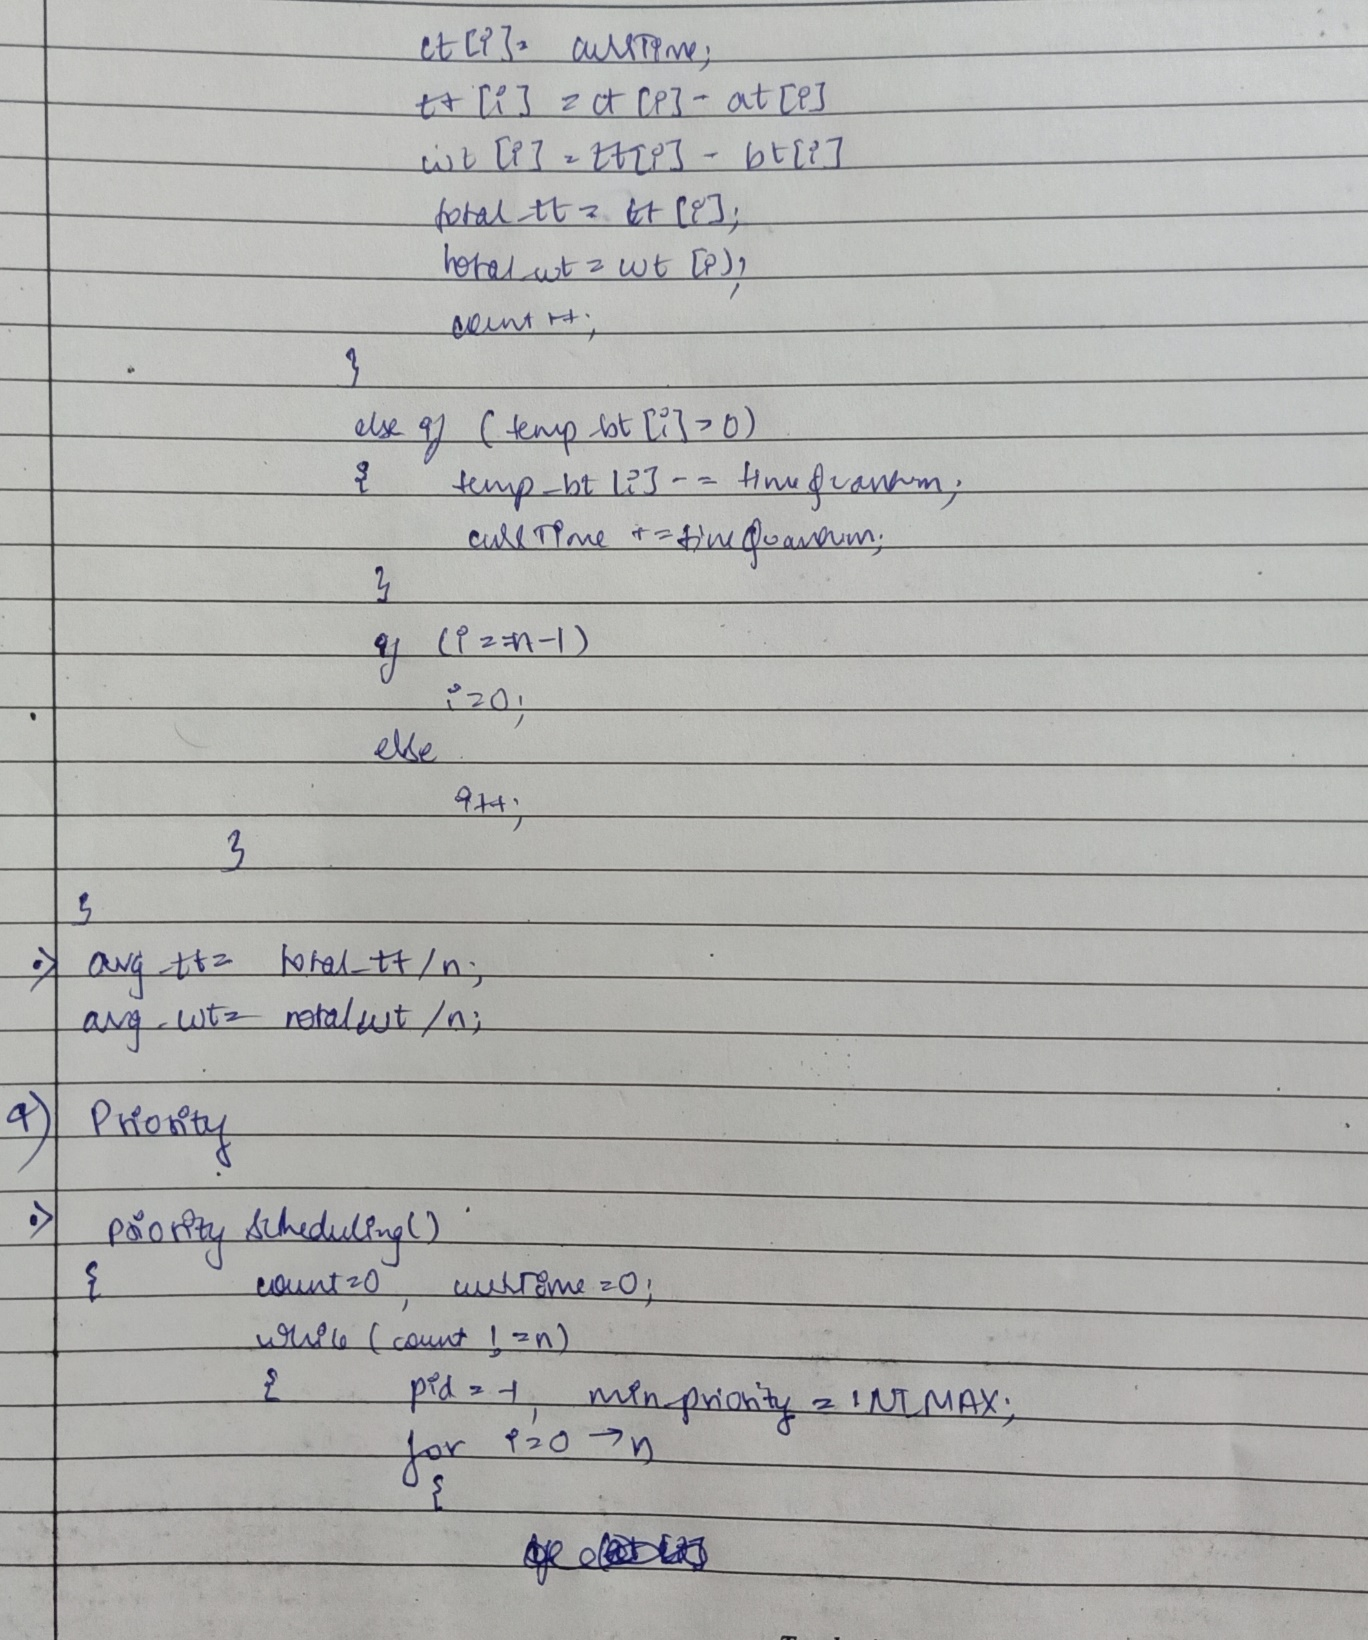 ct[i]= currTime;
tt[i] = ct[i] - at[i]
wt[i] = tt[i] - bt[i]
total_tt = tt[i];
total_wt = wt[i];
count++;
}
else if (temp_bt[i]>0)
{ temp_bt[i] -= timeQuantum;
currTime += timeQuantum;
}
if (i==n-1)
i=0;
else
i++;
}
}
•> avg_tt= total_tt/n;
avg_wt= total_wt/n;
4) Priority
•> priority Scheduling()
{ count=0, currTime=0;
while (count !=n)
{ pid = -1, min_priority = INT_MAX;
for i=0 →n
{